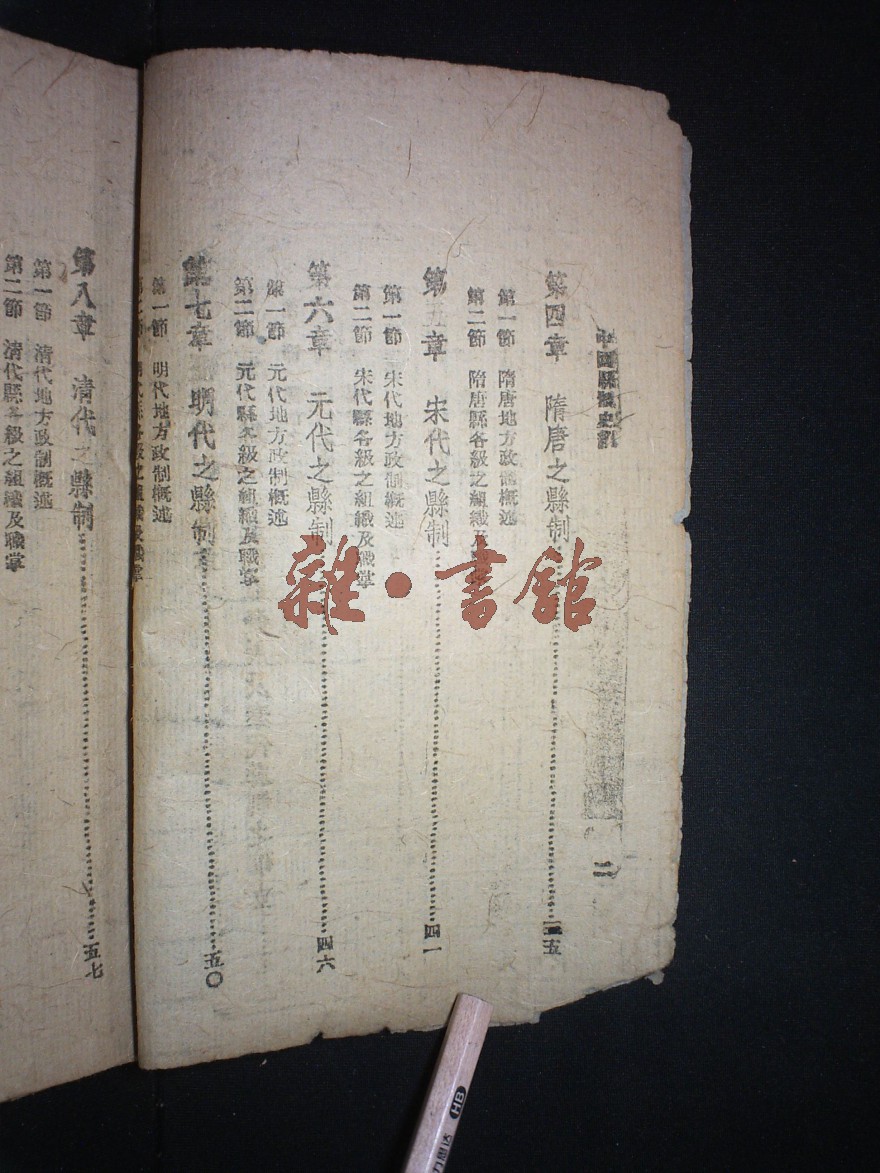 中國縣制史綱
二
第四章 隋唐之縣制 三五
第一節 隋唐地方政制概述
第二節 隋唐縣各級之組織及
第五章 宋代之縣制 四一
第一節 宋代地方政制概述
第二節 宋代縣各級之組織及職掌
第六章 元代之縣制 四六
第一節 元代地方政制概述
第二節 元代縣各級之組織及職掌
第七章 明代之縣制 五〇
第一節 明代地方政制概述
第二節 明代縣各級之組織及職掌
第八章 清代之縣制 五七
第一節 清代地方政制概述
第二節 清代縣各級之組織及職掌
雜·書館
HB